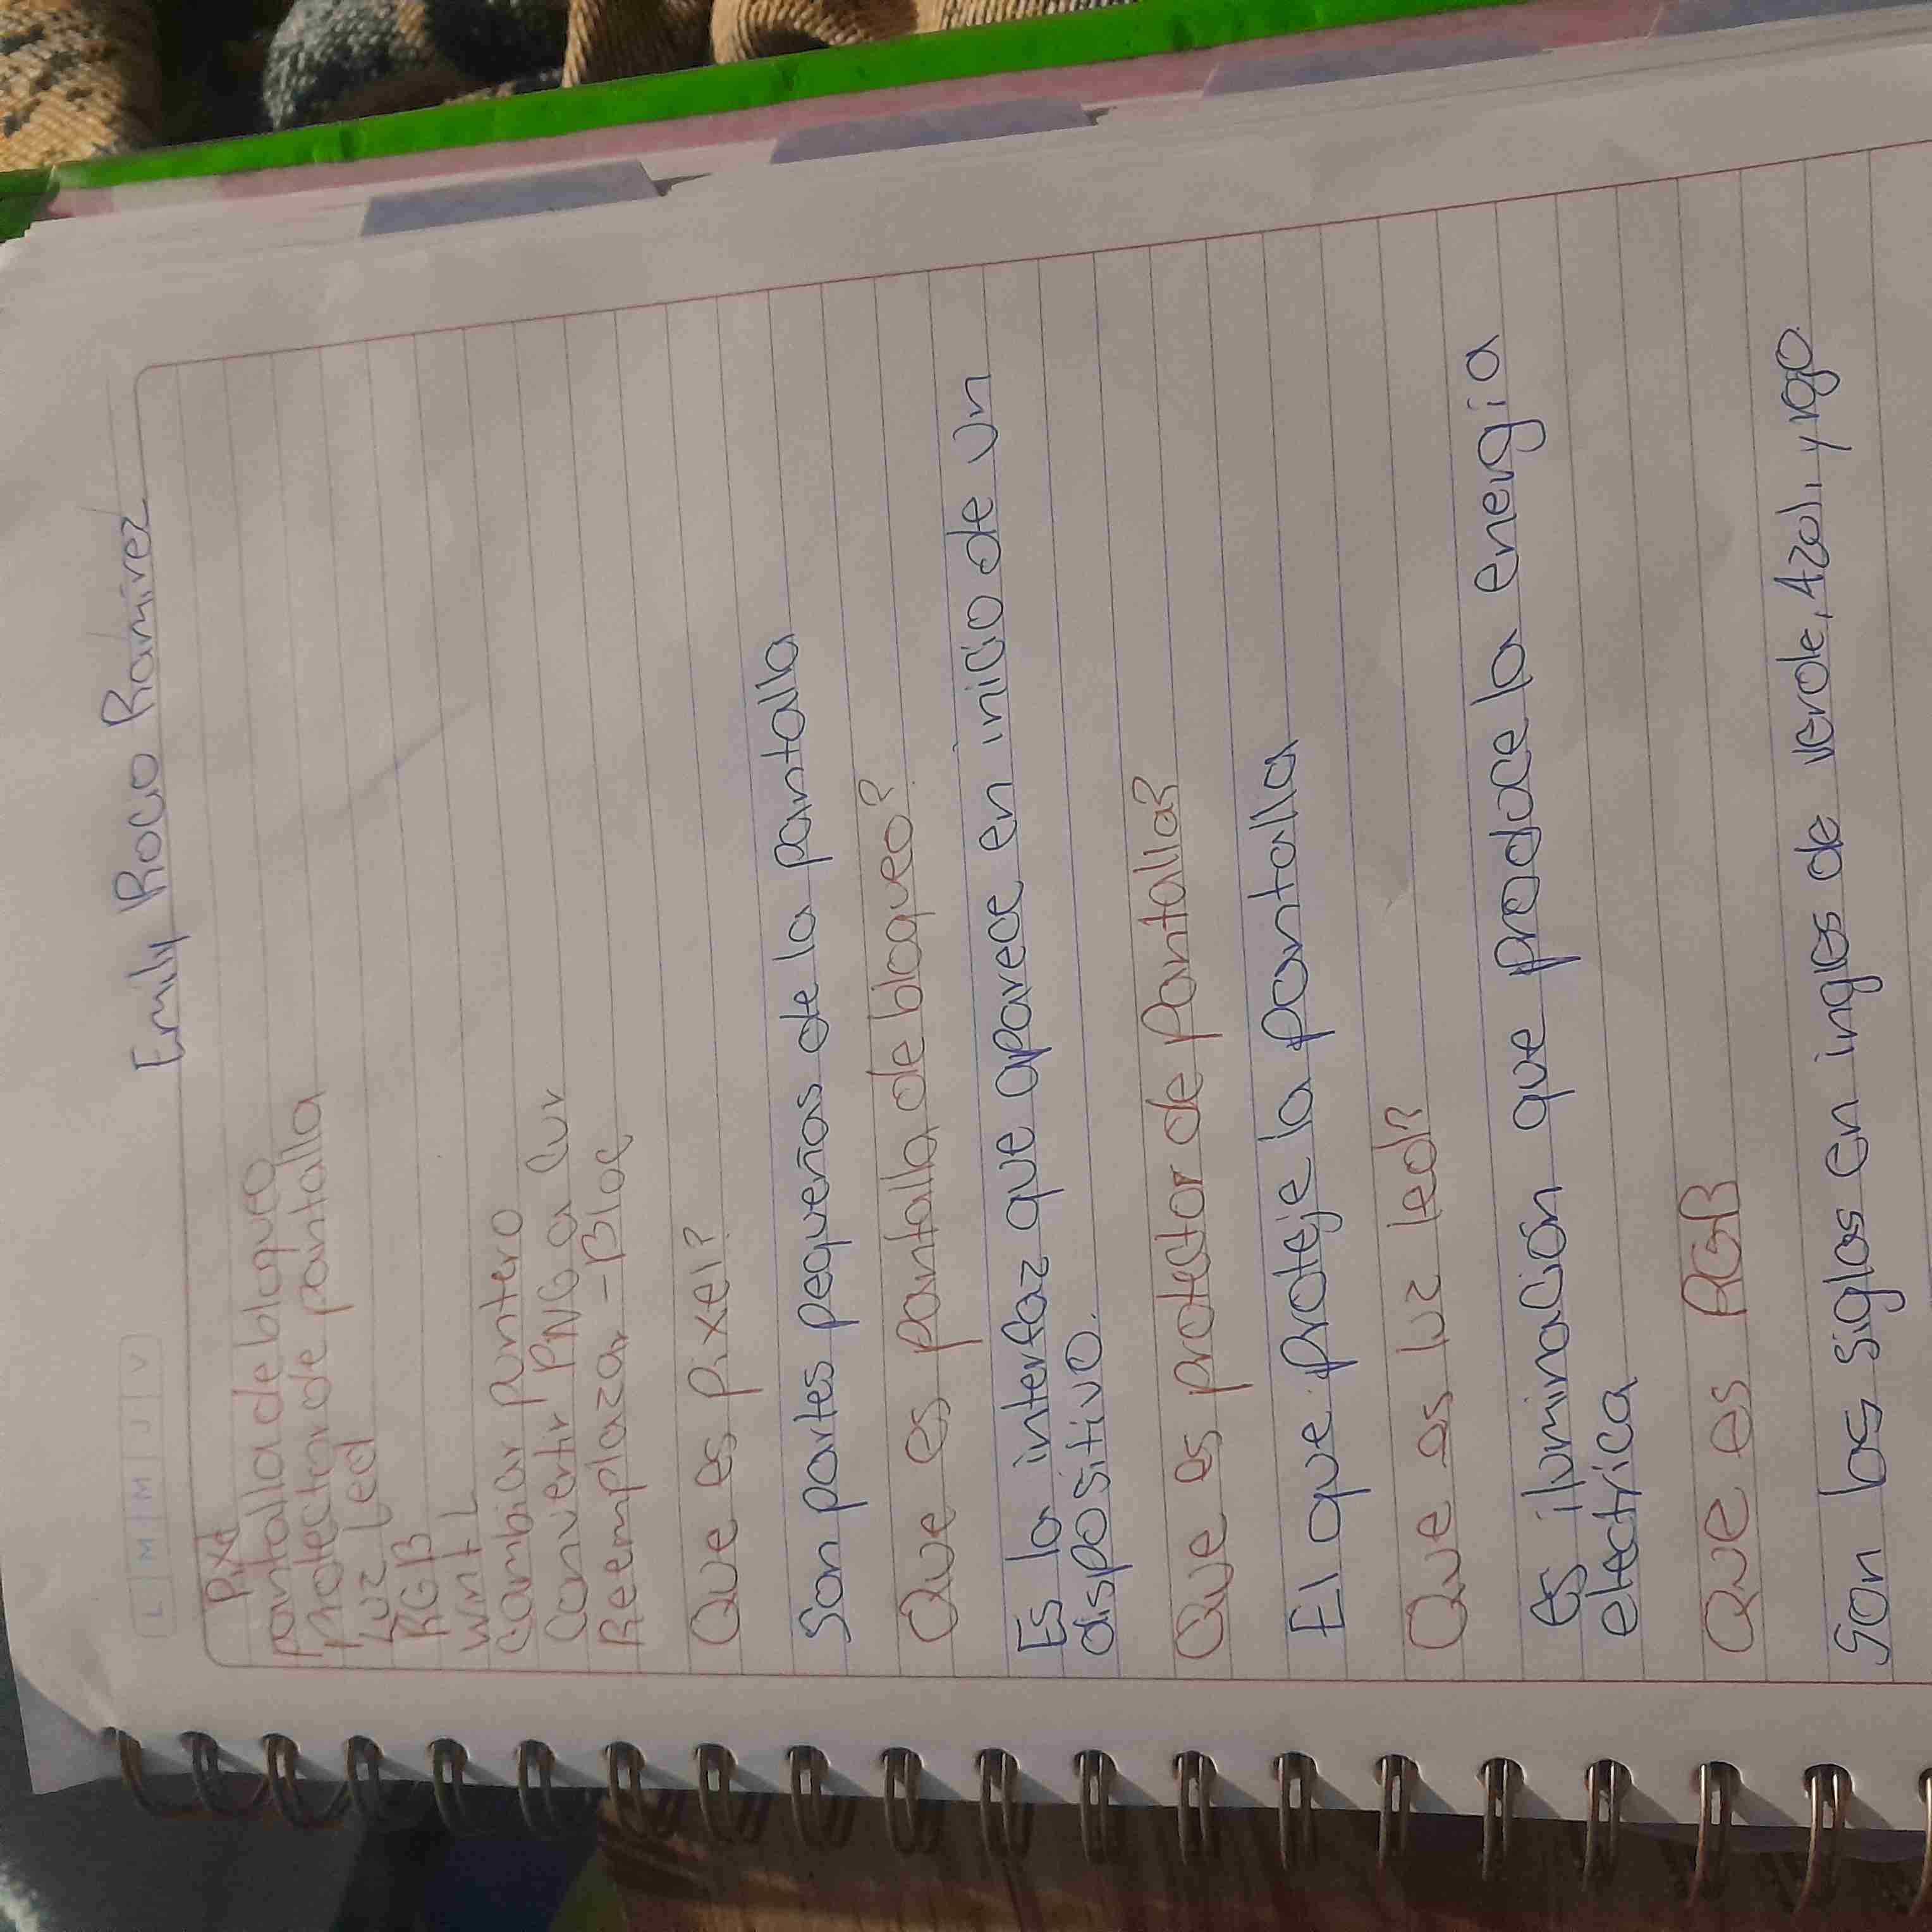 Emily Rocio Ramirez
L M M J V
Pixel
pantalla de bloqueo
protector de pantalla
luz led
RGB
win+L
cambiar puntero
Convertir PNG a Cur
Reemplazar - Bloc
Que es pixel?
Son partes pequeñas de la pantalla
Que es pantalla de bloqueo?
Es la interfaz que aparece en inicio de un
dispositivo.
Que es protector de Pantalla?
El que proteje la pantalla
Que es luz led?
es iluminación que produce la energia
electrica
Que es RGB
Son las siglas en ingles de verde, Azul, y rojo